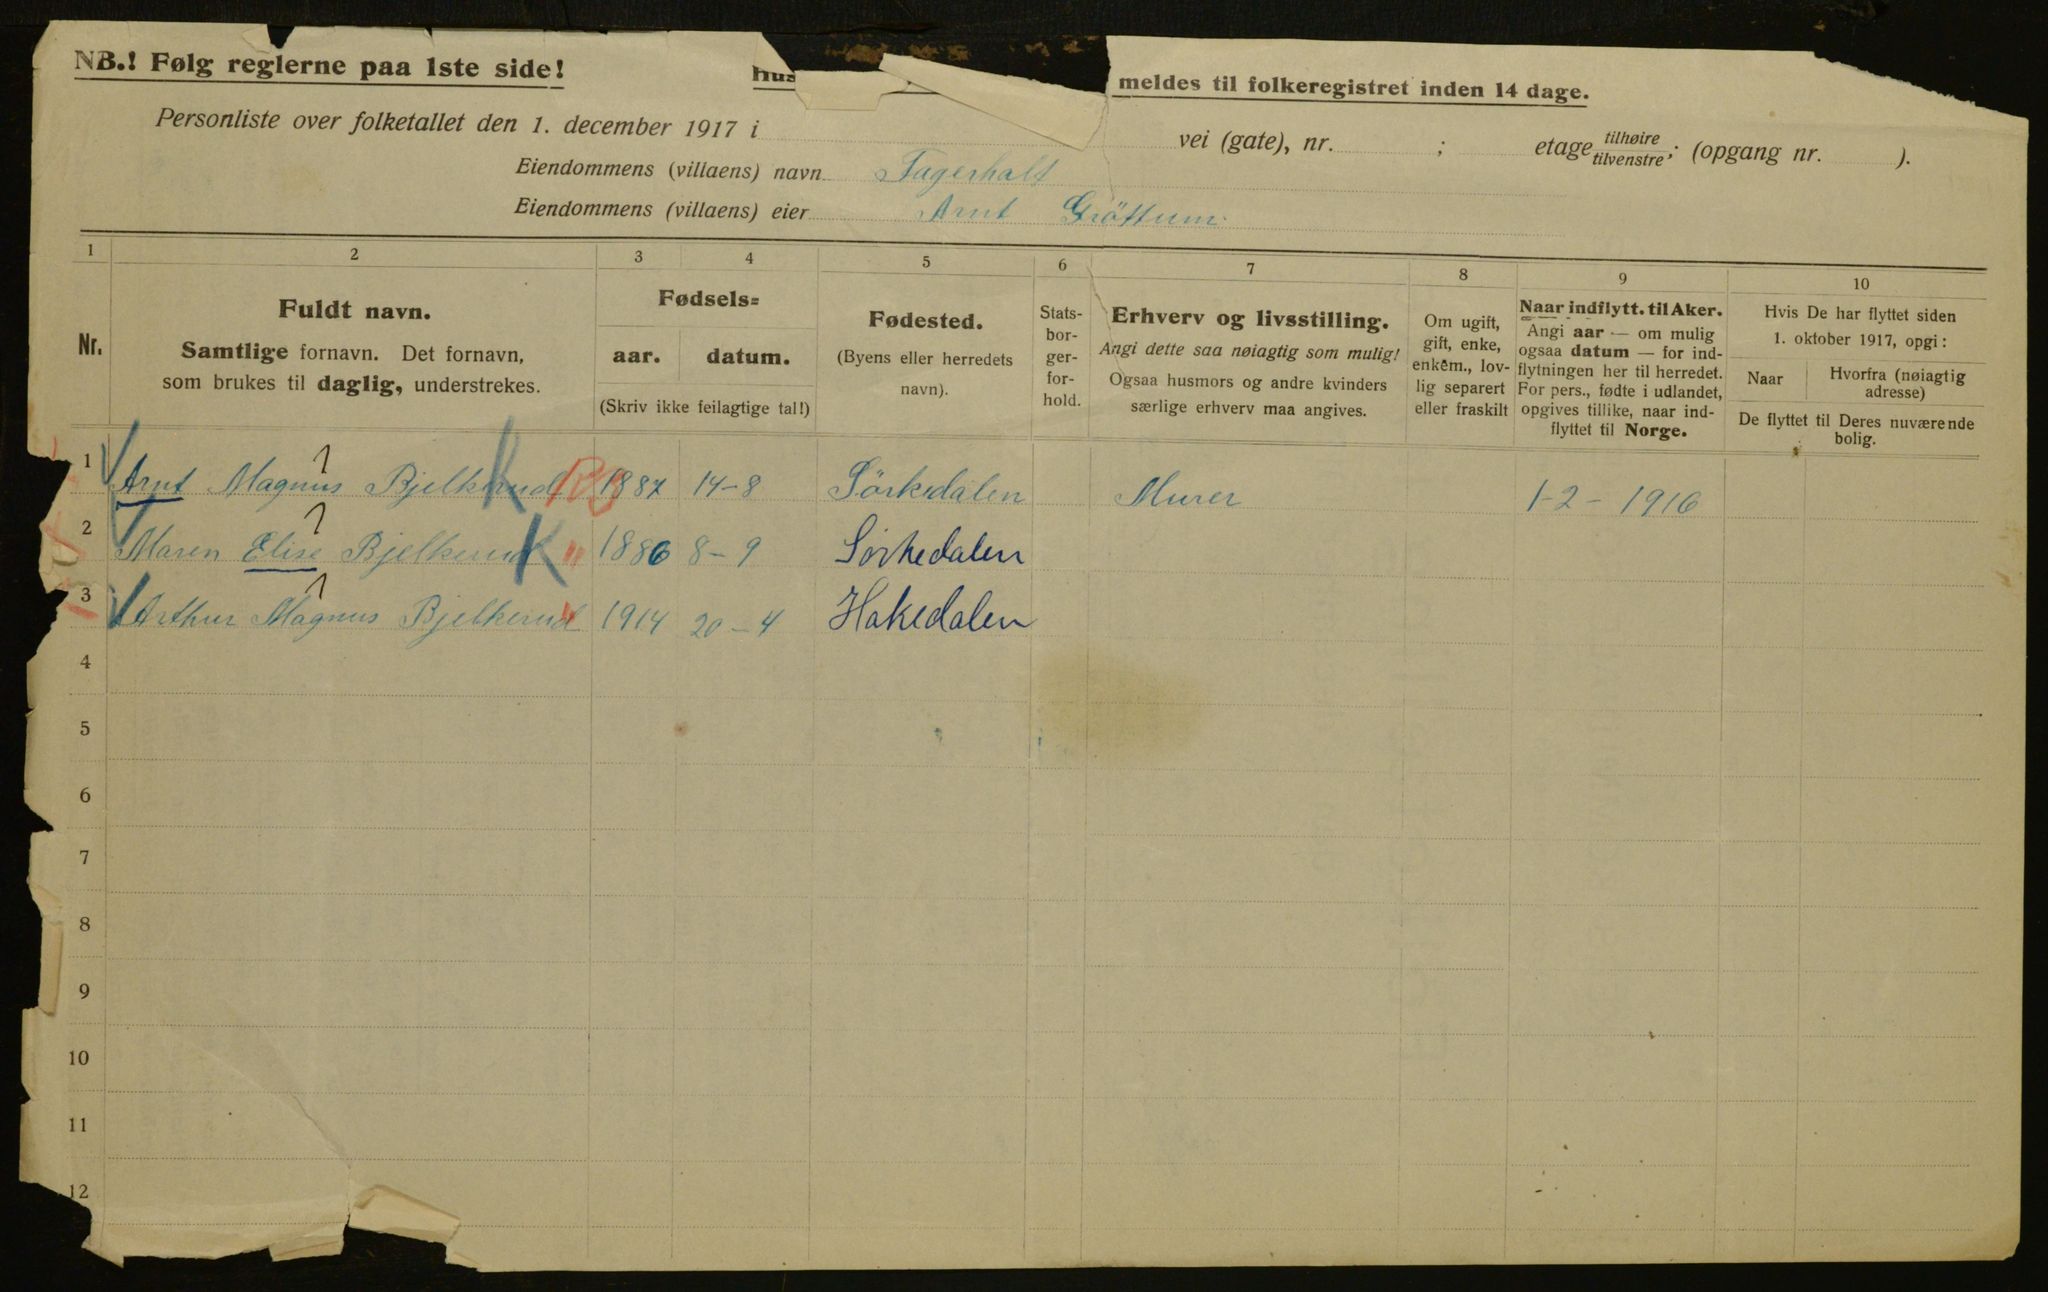 NB.! Følg reglerne paa 1ste side!
meldes til folkeregistret inden 14 dage.
Personliste over folketallet den 1. december 1917 i vei (gate), nr. ; etage tilhøire tilvenstre; (opgang nr. ).
Eiendommens (villaens) navn Fagerhalt
Eiendommens (villaens) eier Arnt Gröttum
1 2 3 4 5 6 7 8 9 10
Nr.
Fuldt navn.
Samtlige fornavn. Det fornavn,
som brukes til daglig, understrekes.
Fødsels=
aar. datum.
(Skriv ikke feilagtige tal!)
Fødested.
(Byens eller herredets
navn).
Stats-
bor-
ger-
for-
hold.
Erhverv og livsstilling.
Angi dette saa nøiagtig som mulig!
Ogsaa husmors og andre kvinders
særlige erhverv maa angives.
Om ugift,
gift, enke,
enkem., lov-
lig separert
eller fraskilt
Naar indflytt. til Aker.
Angi aar — om mulig
ogsaa datum — for ind-
flytningen her til herredet.
For pers., fødte i udlandet,
opgives tillike, naar ind-
flyttet til Norge.
Hvis De har flyttet siden
1. oktober 1917, opgi:
Naar Hvorfra (nøiagtig
adresse)
De flyttet til Deres nuværende
bolig.
1 Arnt Magnus Bjelkerud K 1887 14-8 Sörkedalen Murer 1-2-1916
2 Maren Elise Bjelkerud K " 1886 8-9 Sörkedalen
3 Arthur Magnus Bjelkerud " 1914 20-4 Hakedalen
4
5
6
7
8
9
10
11
12